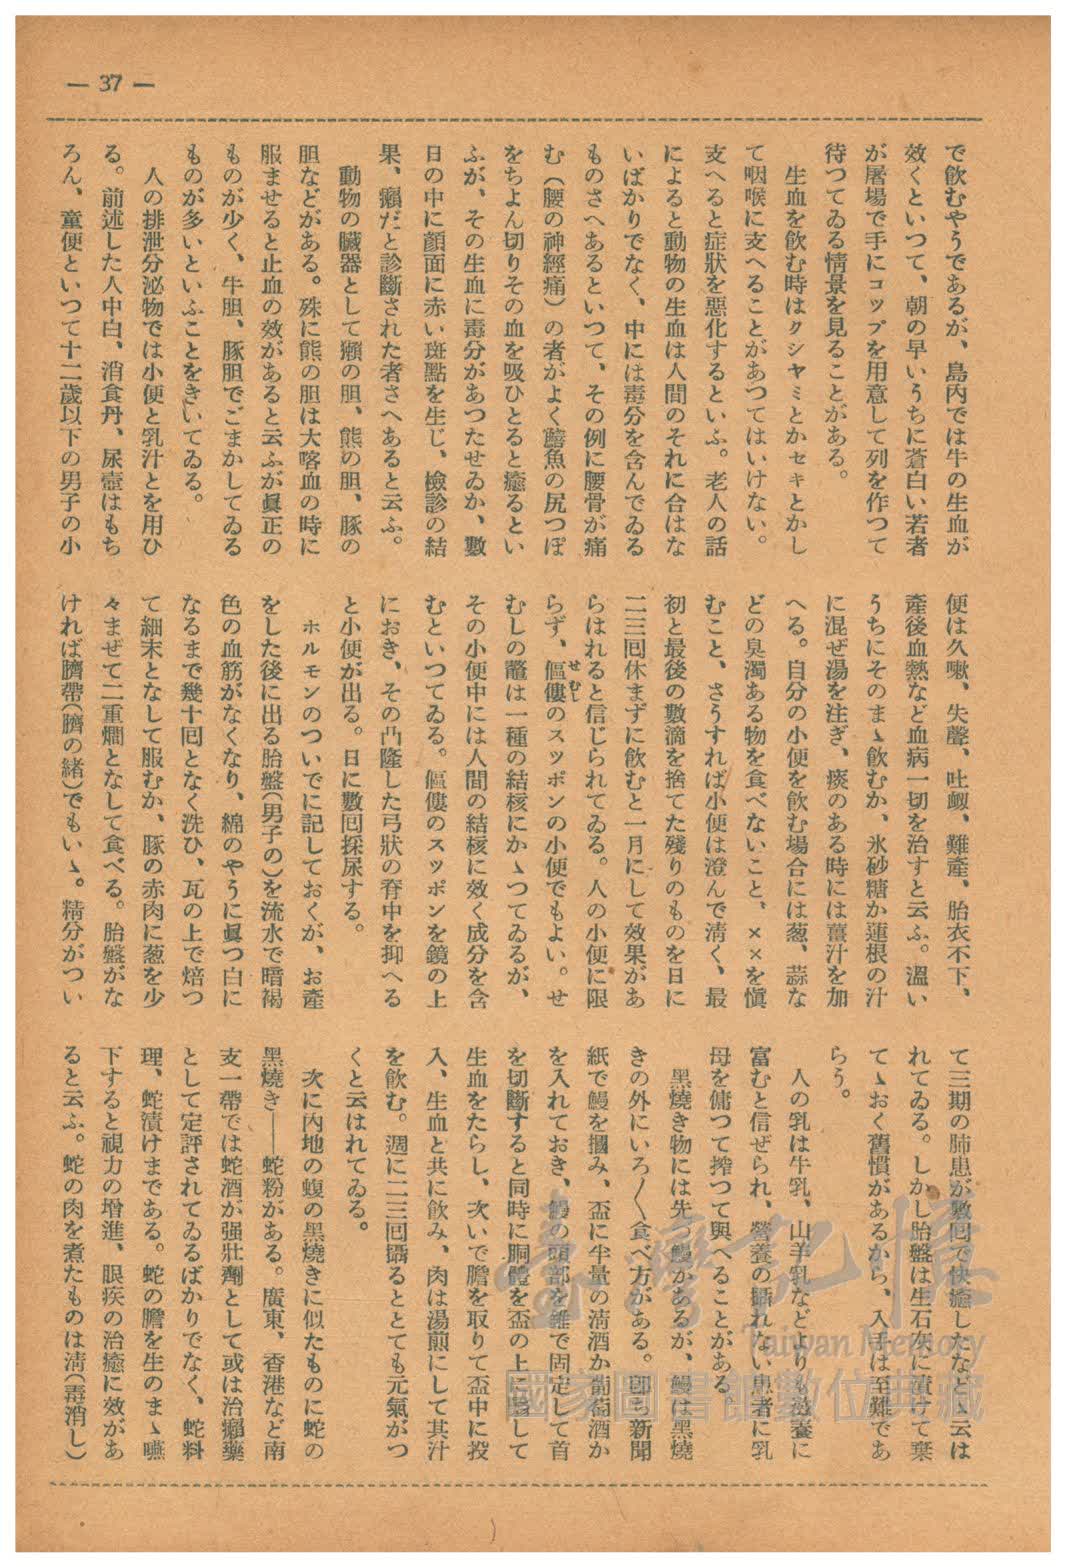 — 37 —
で飲むやうであるが、島内では牛の生血が
效くといつて、朝の早いうちに蒼白い若者
が屠場で手にコップを用意して列を作つて
待つてゐる情景を見ることがある。
生血を飲む時はクシヤミとかセキとかし
て咽喉に支へることがあつてはいけない。
支へると症狀を惡化するといふ。老人の話
によると動物の生血は人間のそれに合はな
いばかりでなく、中には毒分を含んでゐる
ものさへあるといつて、その例に腰骨が痛
む（腰の神經痛）の者がよく鱔魚の尻つぽ
をちよん切りその血を吸ひとると癒るとい
ふが、その生血に毒分があつたせゐか、數
日の中に顔面に赤い斑點を生じ、檢診の結
果、癩だと診斷された者さへあると云ふ。
動物の臟器として獺の胆、熊の胆、豚の
胆などがある。殊に熊の胆は大喀血の時に
服ませると止血の效があると云ふが眞正の
ものが少く、牛胆、豚胆でごまかしてゐる
ものが多いといふことをきいてゐる。
人の排泄分泌物では小便と乳汁とを用ひ
る。前述した人中白、消食丹、尿壺はもち
ろん、童便といつて十二歲以下の男子の小
便は久嗽、失聲、吐衂、難產、胎衣不下、
產後血熱など血病一切を治すと云ふ。溫い
うちにそのまゝ飲むか、氷砂糖か蓮根の汁
に混ぜ湯を注ぎ、痰のある時には薑汁を加
へる。自分の小便を飲む場合には葱、蒜な
どの臭濁ある物を食べないこと、××を愼
むこと、さうすれば小便は澄んで淸く、最
初と最後の數滴を捨てた殘りのものを日に
二三回休まずに飲むと一月にして效果があ
らはれると信じられてゐる。人の小便に限
らず、傴僂のスッポンの小便でもよい。せ
せむし
むしの鼈は一種の結核にかゝつてゐるが、
その小便中には人間の結核に效く成分を含
むといつてゐる。傴僂のスッポンを鏡の上
におき、その凸隆した弓狀の脊中を抑へる
と小便が出る。日に數回採尿する。
ホルモンのついでに記しておくが、お產
をした後に出る胎盤（男子の）を流水で暗褐
色の血筋がなくなり、綿のやうに眞つ白に
なるまで幾十回となく洗ひ、瓦の上で焙つ
て細末となして服むか、豚の赤肉に葱を少
々まぜて二重燗となして食べる。胎盤がな
ければ臍帶（臍の緒）でもいゝ。精分がつい
て三期の肺患が數回で快癒したなどゝ云は
れてゐる。しかし胎盤は生石灰に漬けて棄
てゝおく舊慣があるから、入手は至難であ
らう。
人の乳は牛乳、山羊乳などよりも滋養に
富むと信ぜられ、營養の攝れない患者に乳
母を傭つて搾つて與へることがある。
黑燒き物には先づ鰻があるが、鰻は黑燒
きの外にいろ〱食べ方がある。卽ち新聞
紙で鰻を摑み、盃に半量の淸酒か葡萄酒か
を入れておき、鰻の頭部を錐で固定して首
を切斷すると同時に胴體を盃の上に翳して
生血をたらし、次いで膽を取りて盃中に投
入、生血と共に飲み、肉は湯煎にして其汁
を飲む。週に二三回攝るととても元氣がつ
くと云はれてゐる。
次に內地の蝮の黑燒きに似たものに蛇の
黑燒き——蛇粉がある。廣東、香港など南
支一帶では蛇酒が强壯劑として或は治癩藥
として定評されてゐるばかりでなく、蛇料
理、蛇漬けまである。蛇の膽を生のまゝ嚥
下すると視力の增進、眼疾の治癒に效があ
ると云ふ。蛇の肉を煮たものは淸（毒消し）
臺灣記憶
Taiwan Memory
國家圖書館數位典藏